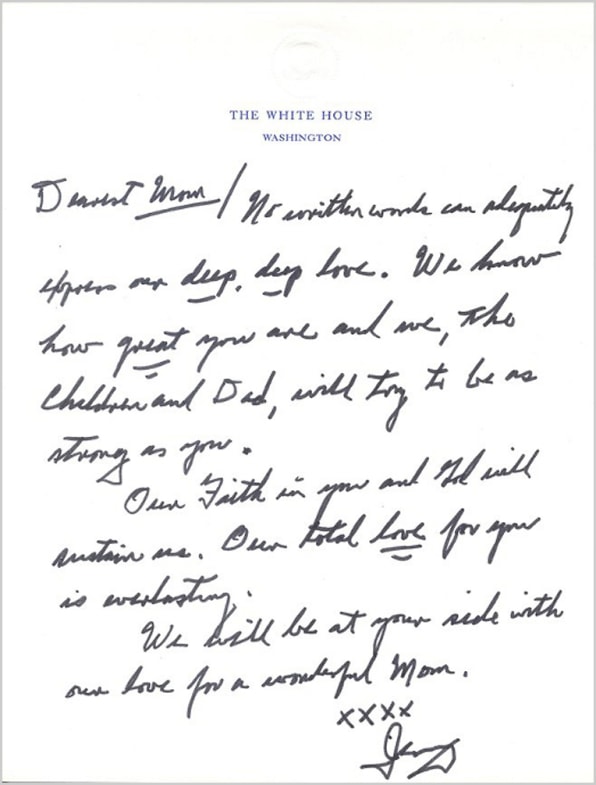 THE WHITE HOUSE
WASHINGTON
Dearest Mom / No written words can adequately
express our deep, deep love. We know
how great you are and we, the
Children and Dad, will try to be as
strong as you.
Our Faith in you and God will
sustain us. Our total love for you
is everlasting.
We will be at your side with
our love for a wonderful Mom.
xxxx
Jerry